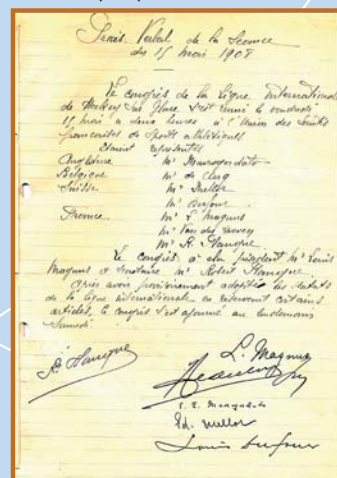 Procès Verbal de la Séance
du 15 mai 1908
Le congrès de la Ligue Internationale
de Hockey sur glace s'est réuni le vendredi
15 mai à deux heures à l'Union des Sociétés
françaises de Sports athlétiques
Etaient représentés
Angleterre Mr Mavrogordato
Belgique Mr de Clercq
Suisse Mr Mellor
Mr Dufour
France Mr L Magnus
Mr Van der
Mr R. Planque
Le congrès a élu président Mr Louis
Magnus et secrétaire Mr Robert Planque
Après avoir provisoirement adopté les statuts
de la ligue internationale en réservant certains
articles, le congrès s'est ajourné au lendemain
Samedi
R Planque
L. Magnus
Ed. Mellor
Louis Dufour